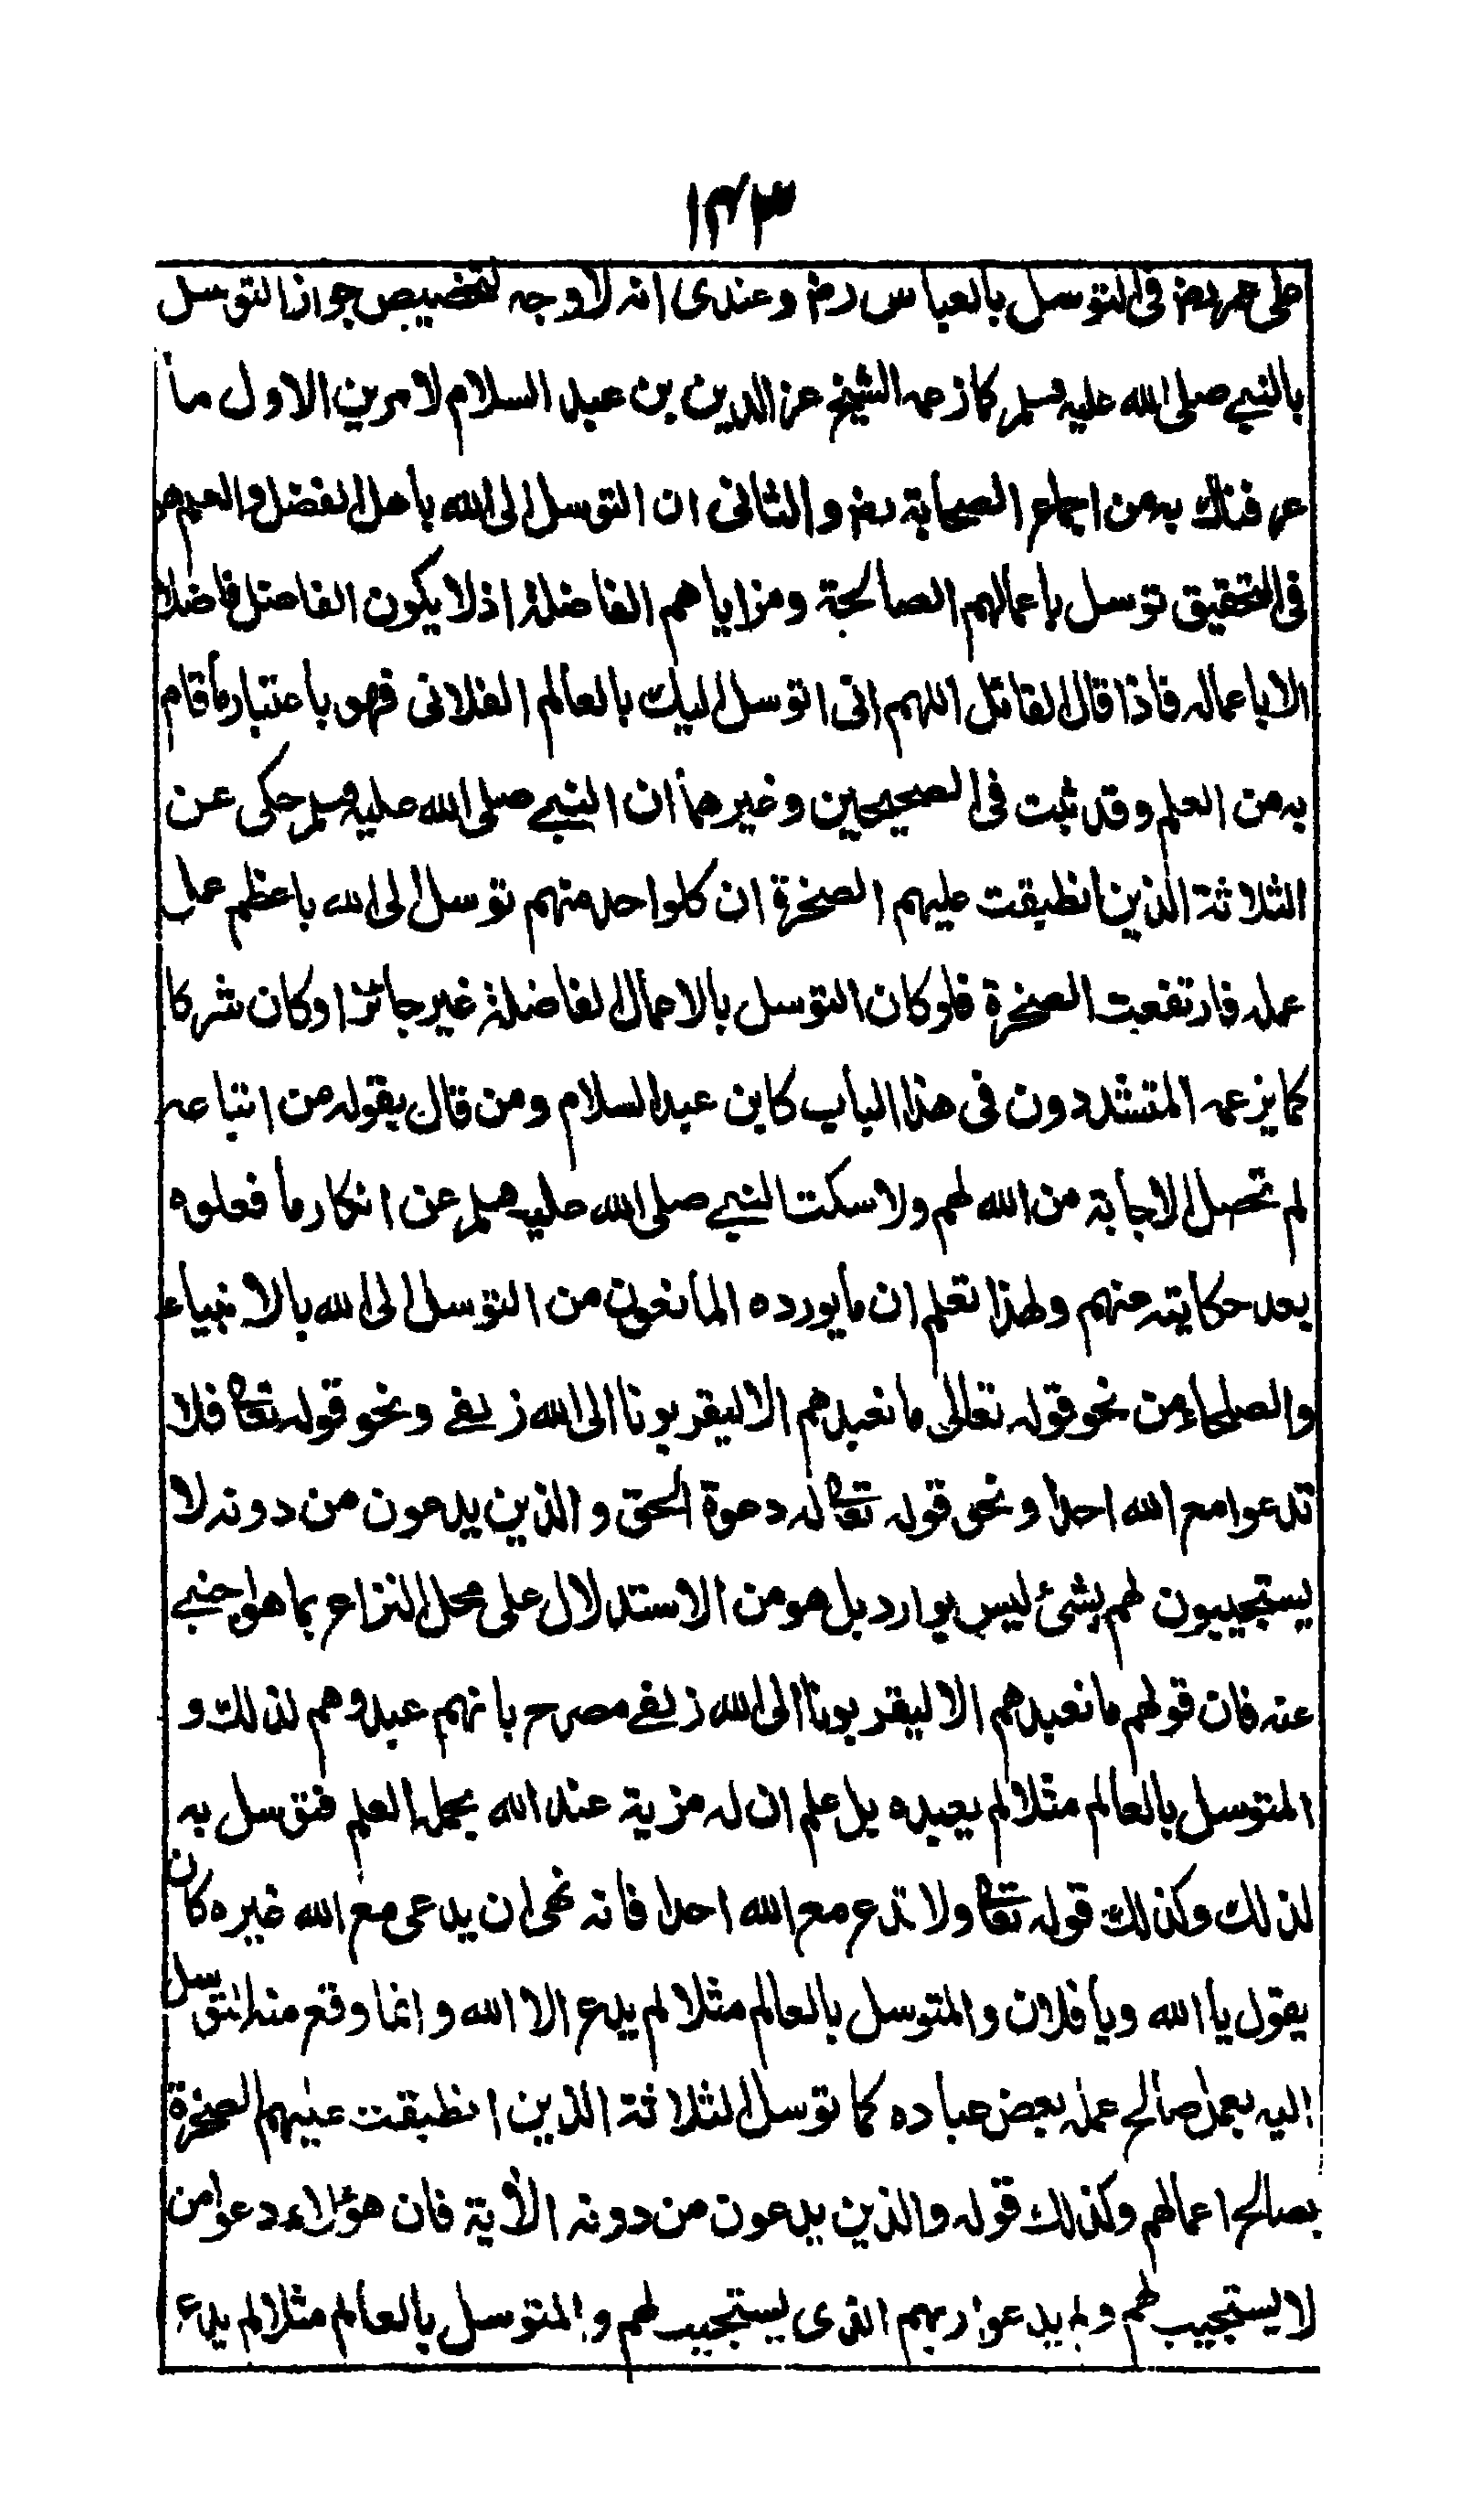 ١٤٣
على عمر رض في التوسل بالعباس رض وعندى انه لا وجه لتخصيص جواز التوسل
بالنبي صلى الله عليه وسلم كما زعمه الشيخ عز الدين بن عبد السلام لامرين الاول ما
عرفناك به من اجماع الصحابة رض والثانى ان التوسل الى الله باهل الفضل والعلم هو
فى التحقيق توسل باعمالهم الصالحة ومزاياهم الفاضلة اذ لا يكون الفاضل فاضلا
الا باعماله فاذا قال القائل اللهم انى اتوسل اليك بالعالم الفلانى فهو باعتبار ما قام
به من العلم وقد ثبت فى الصحيحين وغيرهما ان النبي صلى الله عليه وسلم حكى عن
الثلاثة الذين انطبقت عليهم الصخرة ان كل واحد منهم توسل الى الله باعظم عمل
عمله فارتفعت الصخرة فلو كان التوسل بالاعمال الفاضلة غير جائز او كان شركا
كما يزعمه المتشددون فى هذا الباب كابن عبد السلام ومن قال بقوله من اتباعه
لم تحصل الاجابة من الله لهم ولا سكت النبي صلى الله عليه وسلم عن انكار ما فعلوه
بعد حكايته عنهم ولهذا تعلم ان ما يورده المانعون من التوسل الى الله بالانبياء
والصلحاء من نحو قوله تعالى ما نعبدهم الا ليقربونا الى الله زلفى ونحو قوله تعا فلا
تدعوا مع الله احدا ونحو قوله تعا له دعوة الحق والذين يدعون من دونه لا
يستجيبون لهم بشئ ليس بوارد بل هو من الاستدلال على محل النزاع بما هو اجنبي
عنه فان قولهم ما نعبدهم الا ليقربونا الى الله زلفى مصرح بانهم عبدوهم لذلك و
المتوسل بالعالم مثلا لم يعبده بل علم ان له مزية عند الله بحمله العلم فتوسل به
لذلك وكذلك قوله تعا ولا تدع مع الله احدا فانه نهى ان يدعى مع الله غيره كان
يقول يا الله ويا فلان والمتوسل بالعالم مثلا لم يدع الا الله وانما وقع منه التوسل
اليه بعمل صالح عمله بعض عباده كما توسل الثلاثة الذين انطبقت عليهم الصخرة
بصالح اعمالهم وكذلك قوله والذين يدعون من دونه الآية فان هؤلاء دعوا من
لا يستجيب لهم ولم يدعوا ربهم الذى يستجيب لهم والمتوسل بالعالم مثلا لم يدع